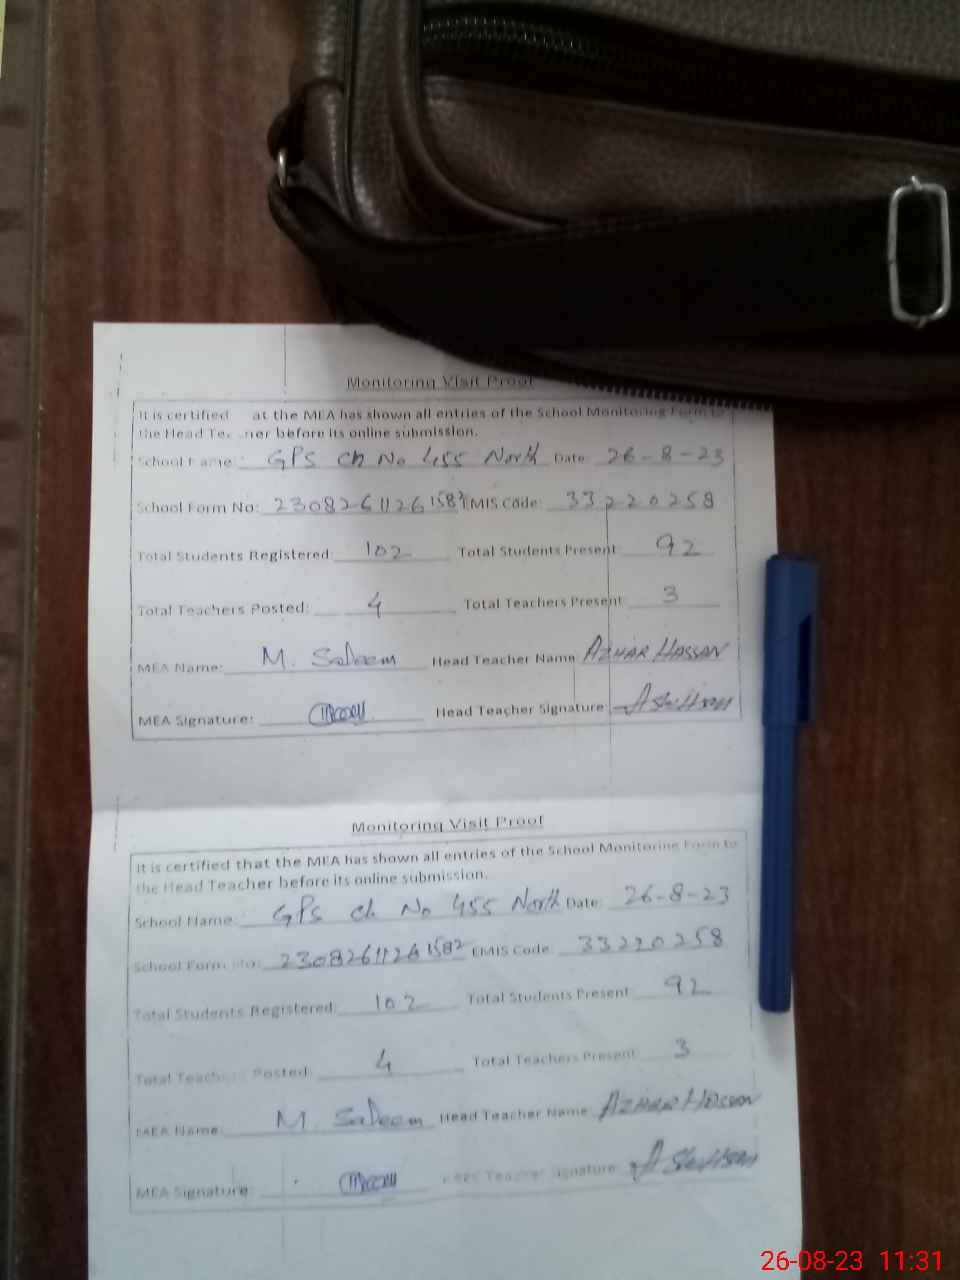 Monitoring Visit Proof
It is certified at the MEA has shown all entries of the School Monitoring Form to
the Head Te. ner before its online submission.
School Name: GPS Ch No 455 North Date: 26-8-23
School Form No: 23082611261582 EMIS Code: 33220258
Total Students Registered: 102 Total Students Present: 92
Total Teachers Posted: 4 Total Teachers Present: 3
MEA Name: M. Saleem Head Teacher Name: AZHAR HASSAN
MEA Signature: Head Teacher Signature:
Monitoring Visit Proof
It is certified that the MEA has shown all entries of the School Monitoring Form to
the Head Teacher before its online submission.
School Name: GPS Ch No 455 North Date: 26-8-23
School Form No: 23082611261582 EMIS Code: 33220258
Total Students Registered: 102 Total Students Present: 92
Total Teachers Posted: 4 Total Teachers Present: 3
MEA Name: M. Saleem Head Teacher Name: AZHAR HASSAN
MEA Signature: Head Teacher Signature:
26-08-23 11:31